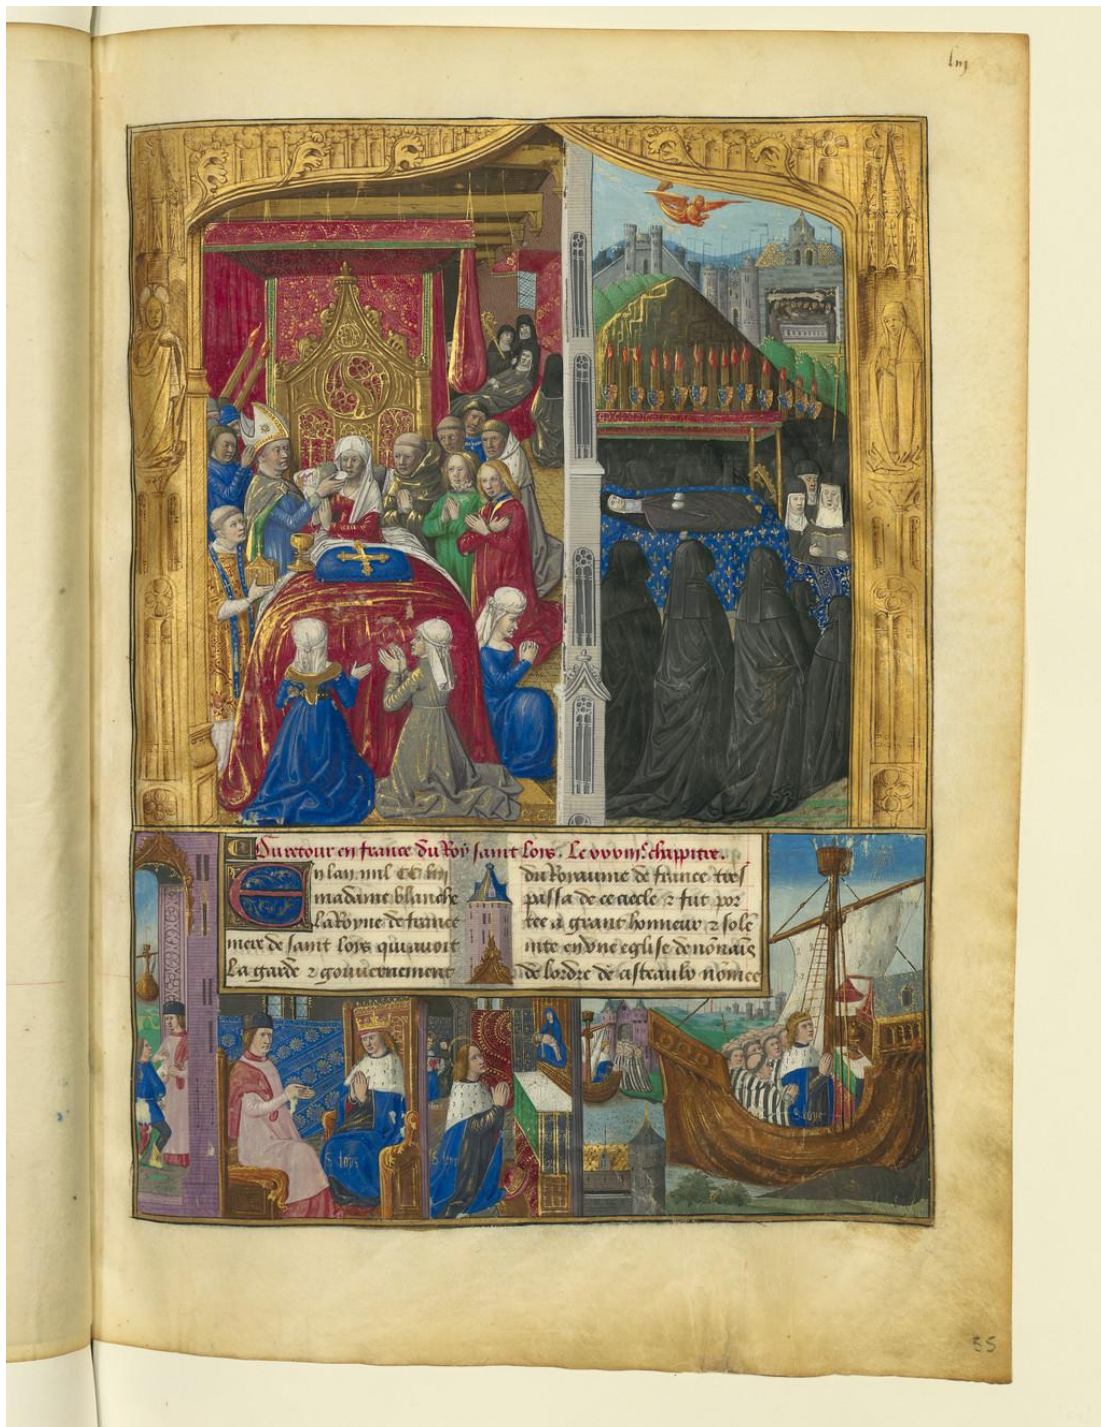 Du retour en france du Roy saint Loys. Le xxxiije chappitre.
En lan mil CC liij
madame blanche
La Royne de france
mere de saint loys qui auoit
La garde & gouuernement
du Royaume de france tres
passa de ce siecle & fut por
tee a grant honneur & sole
nite en vne eglise de nonnais
de lordre de cisteaulx nomee
S. loys
S. loys
S. loys
55